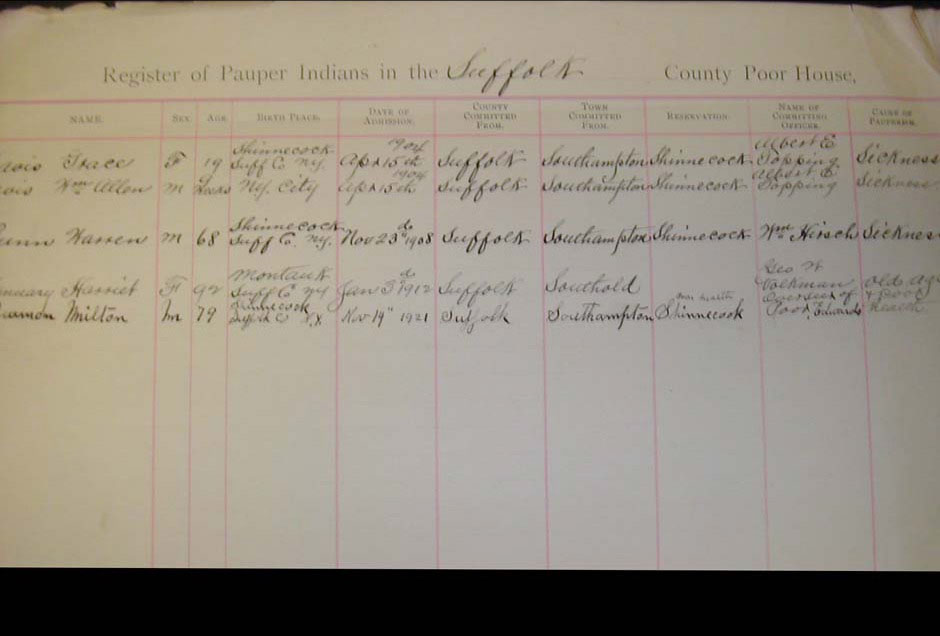 Register of Pauper Indians in the Suffolk County Poor House,
NAME. SEX. AGE. BIRTH PLACE. DATE OF ADMISSION. COUNTY COMMITTED FROM. TOWN COMMITTED FROM. RESERVATION. NAME OF COMMITTING OFFICER. CAUSE OF PAUPERISM.
Shinnecock 1904 Albert E
F 19 Suff C. NY. Apr 15th Suffolk Southampton Shinnecock Topping Sickness
1904 Albert E
Wm Allen M NY. City Apr 15th Suffolk Southampton Shinnecock Topping Sickness
Shinnecock
Warren M 68 Suff C. NY. Nov 23d 1908 Suffolk Southampton Shinnecock Wm Hirsch Sickness
Montauk Geo W
Harriet F 92 Suff C NY Jan 3d 1912 Suffolk Southold old Age
Shinnecock Overseer of & poor
Milton M 79 Suffolk C N.Y. Nov 14" 1921 Suffolk Southampton Shinnecock Poor Edwards health